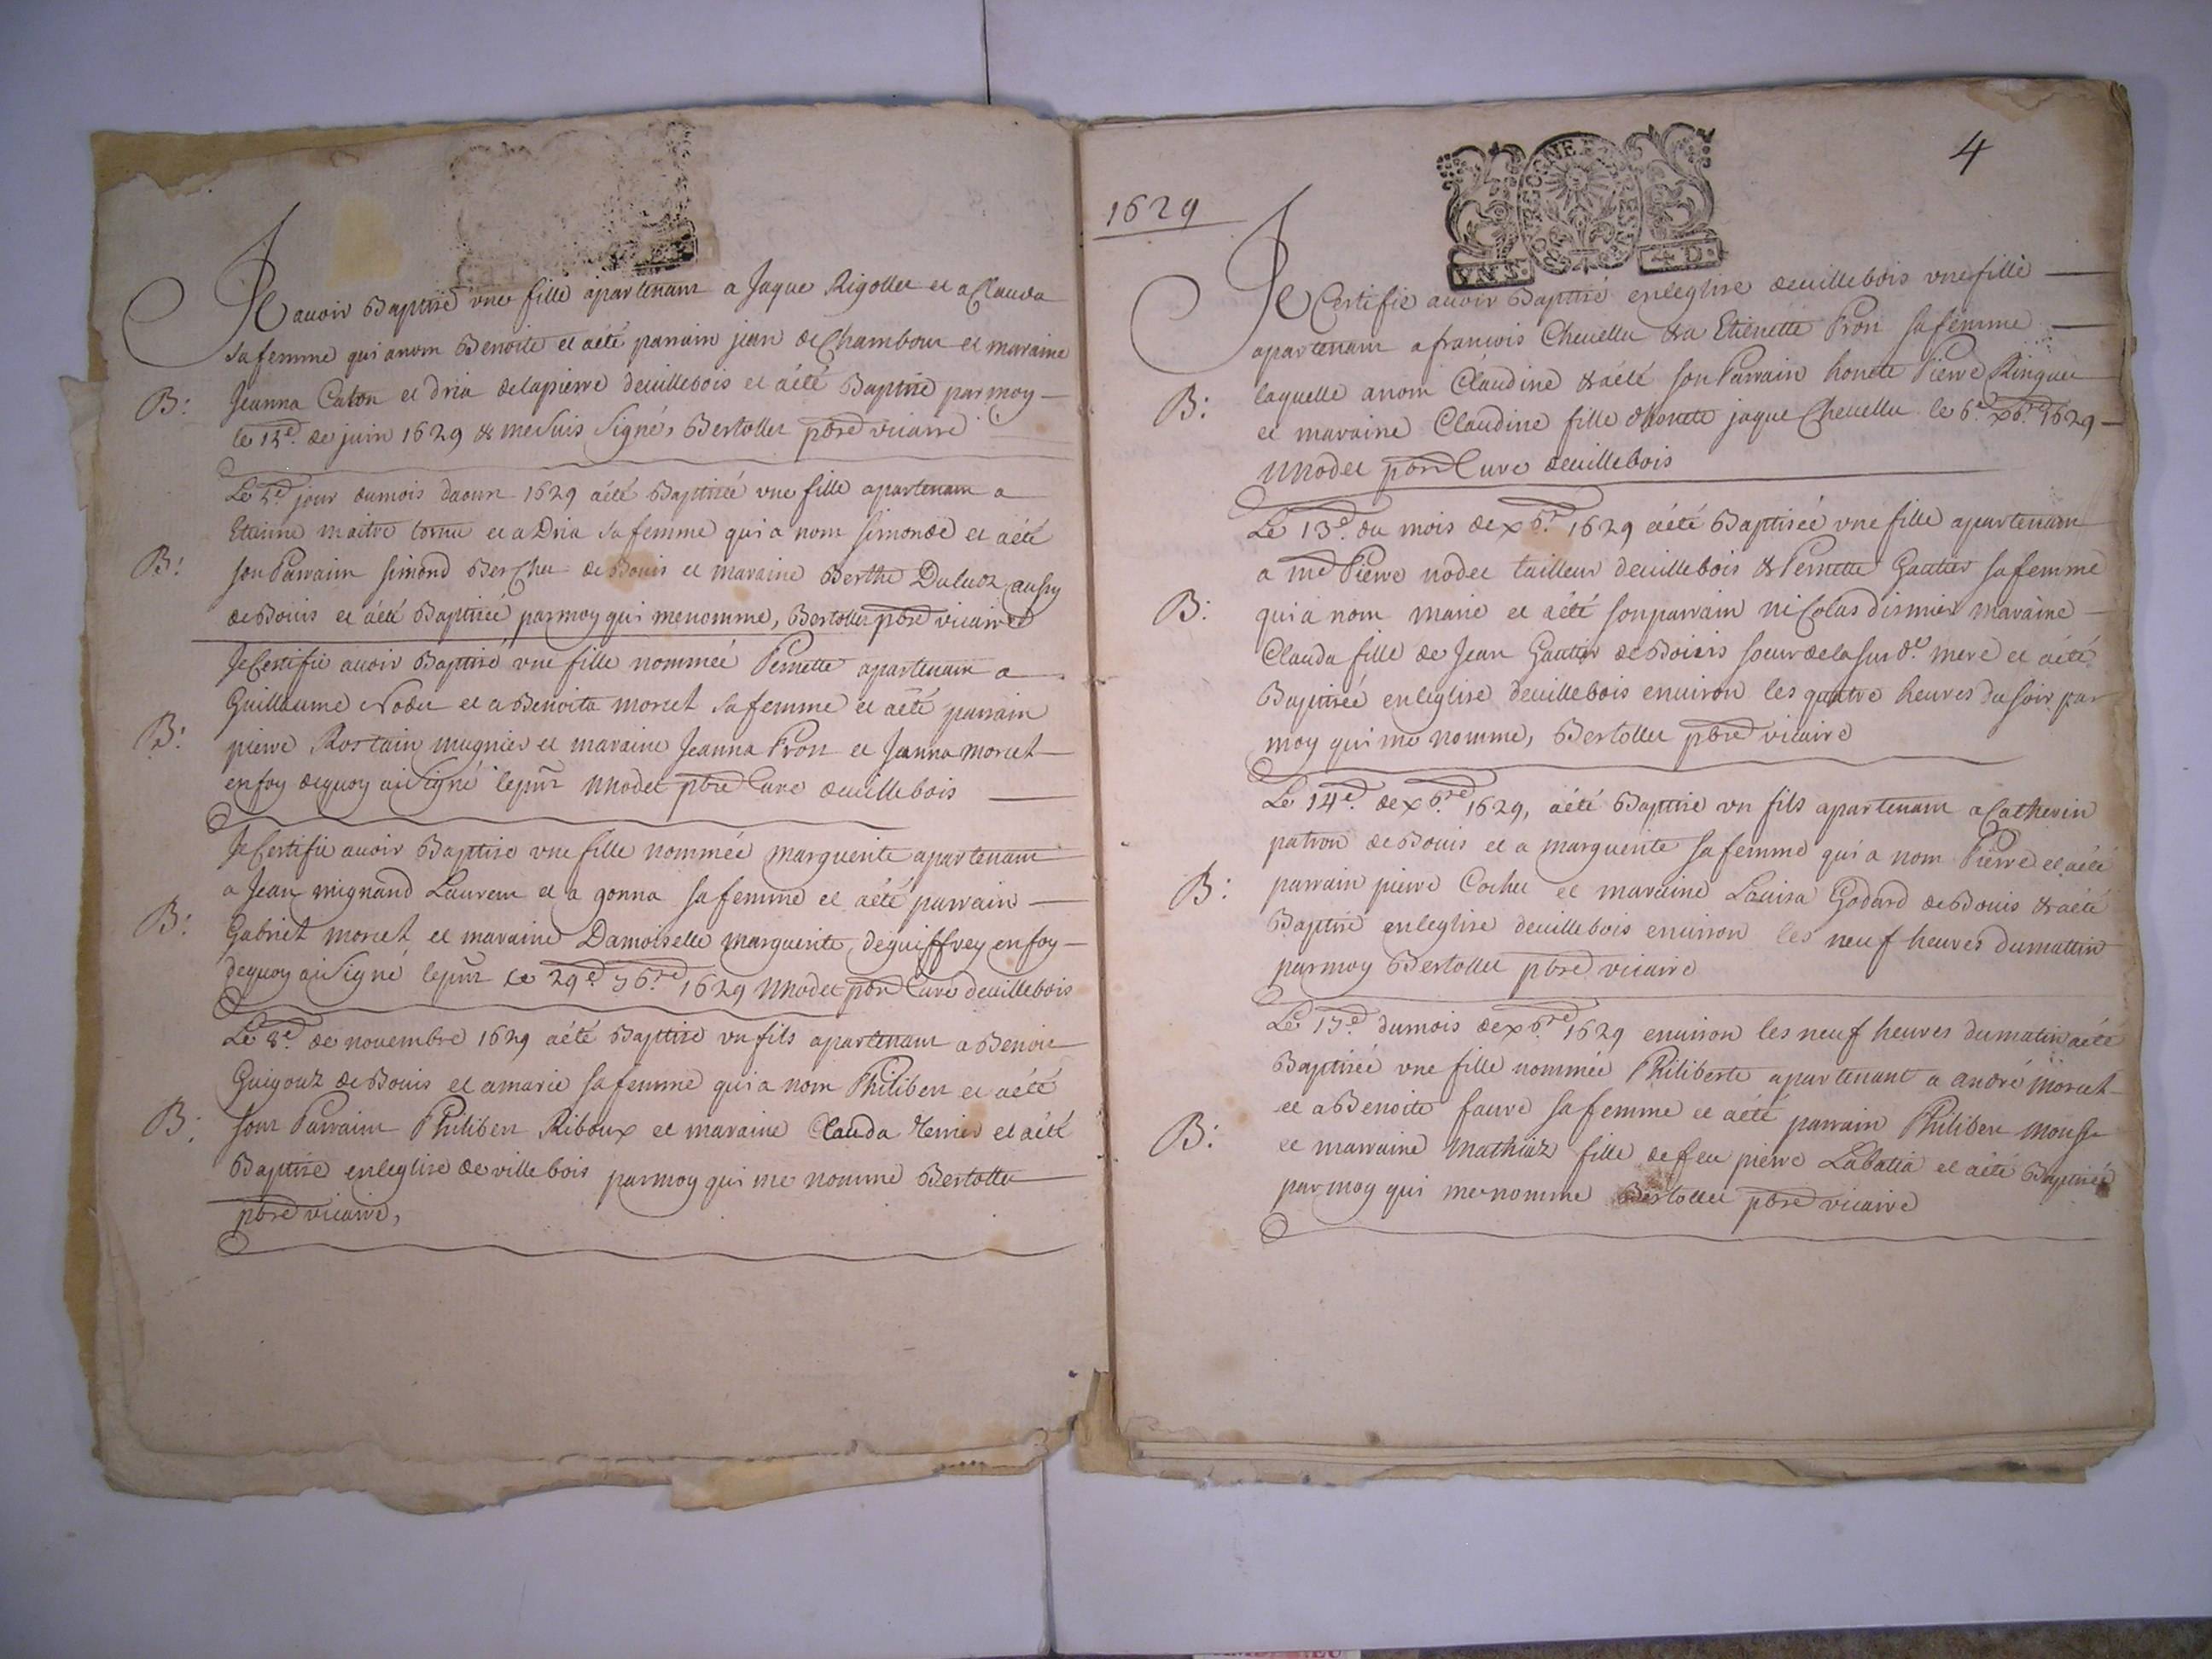 Je avoir Baptisé une fille apartenant a Jaque Rigollet et a Clauda
sa femme qui a nom Benoite et a été parrain jean de Chambour et maraine
B: Jeanna Caton et dria delapierre deuillebois et a été Baptisé par moy
le 15e. de juin 1629 & me suis signé, Bertollet pbre vicaire
Le 5e jour du mois daoust 1629 a été Baptisée une fille apartenant a
Etienne maitre tornu et a Dria sa femme qui a nom simonde et a été
B: son Parrain simond Berchu de Bouis et maraine Berthe Duluoz aussy
de Bouis et a été Baptisée par moy qui me nomme, Bertollet pbre vicaire
Je Certifie auoir Baptisé une fille nommée Pernette apartenant a
Guillaume Nodet et a Benoita morset sa femme et a été parrain
B: pierre Rostain mugnier et maraine Jeanna Pron et Janna morset
en foy dequoy ai signé le pnt Nodet pbre Curé deuillebois
Je Certifie auoir Baptisé vne fille nommée marguerite apartenant
a Jean mignand Laurent et a gonna sa femme et a été parrain
B: Gabriel morset et maraine Damoiselle marguerite deguiffrey en foy
dequoy ai signé le pnt le 29e 76re 1629 Nodet pbre Curé deuillebois
Le 8e. de nouembre 1629 a été Baptisé vn fils apartenant a Benoit
Guigouz de Bouis et a marie sa femme qui a nom Philibert et a été
B: son Parrain Philibert Riboux et maraine Clauda Tenier et a été
Baptisé en leglise de ville bois par moy qui me nomme Bertollet
pbre vicaire,
4
1629
Je Certifie auoir Baptisé en leglise deuillebois vne fille
apartenant a francois Cheuellu & a Etienette Pron sa femme
laquelle a nom Claudine & a été son Parrain honete Pierre Ringuet
B: et maraine Claudine fille dhonete jaque Cheuellu le 6e. x6re 1629
Nodet pbre Curé deuillebois
Le 13e. du mois de x6re. 1629 a été Baptisée vne fille apartenant
a me Pierre nodet tailleur deuillebois & Pernette Gautier sa femme
B: qui a nom marie et a été son parrain nicolas dismier maraine
Clauda fille de Jean Gautier de Bouis soeur de la susd.e mere et a été
Baptisée en leglise deuillebois enuiron les quatre heures du soir par
moy qui me nomme, Bertollet pbre vicaire
Le 14e. de x6re. 1629, a été Baptisé vn fils apartenant a Catherin
patron de Bouis et a marguerite sa femme qui a nom Pierre et a été
B: parrain pierre Cochet et maraine Louisa Godard de Bouis & a été
Baptisé en leglise deuillebois enuiron les neuf heures du mattin
par moy Bertollet pbre vicaire
Le 15e. du mois de x6re. 1629 enuiron les neuf heures du matin a été
Baptisée vne fille nommée Philiberte apartenant a andré morset
et a Benoite faure sa femme et a été parrain Philibert
B: et marraine mathiaz fille de feu pierre Labatia et a été Baptisée
par moy qui me nomme Bertollet pbre vicaire